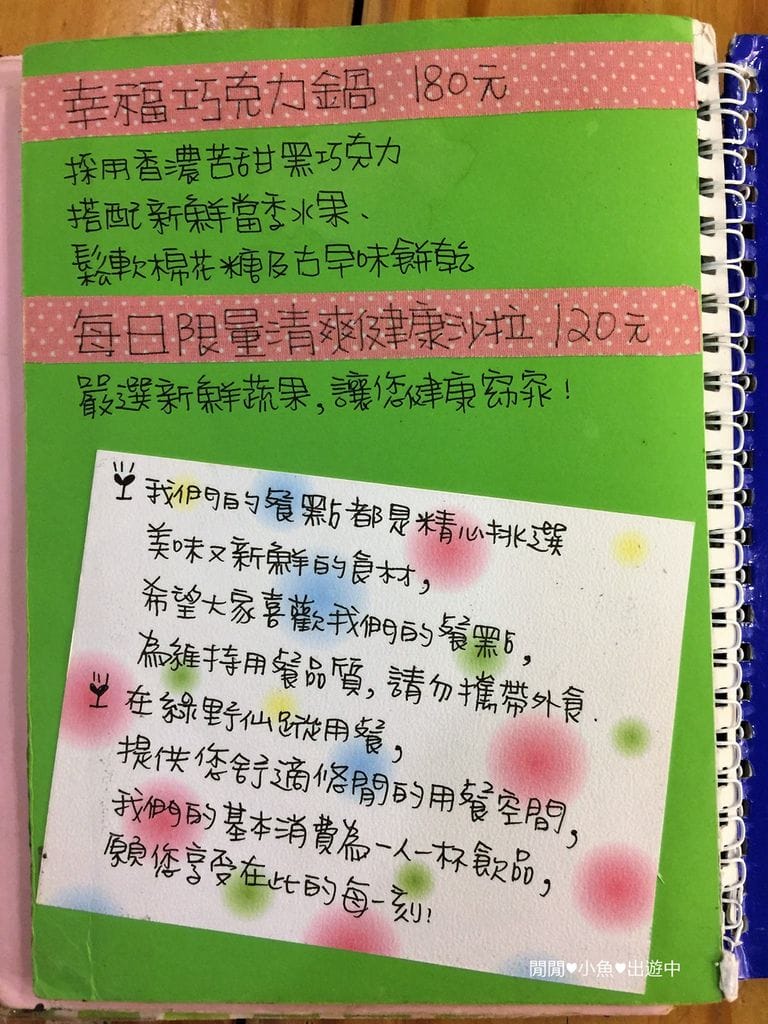 幸福巧克力鍋 180元
採用香濃苦甜黑巧克力
搭配新鮮當季水果、
鬆軟棉花糖及古早味餅乾
每日限量清爽健康沙拉 120元
嚴選新鮮蔬果,讓您健康窈窕!
我們的餐點都是精心挑選
美味又新鮮的食材,
希望大家喜歡我們的餐點,
為維持用餐品質,請勿攜帶外食.
在綠野仙蹤用餐,
提供您舒適悠閒的用餐空間,
我們的基本消費為一人一杯飲品,
願您享受在此的每一刻!
閒閒♥小魚♥出遊中